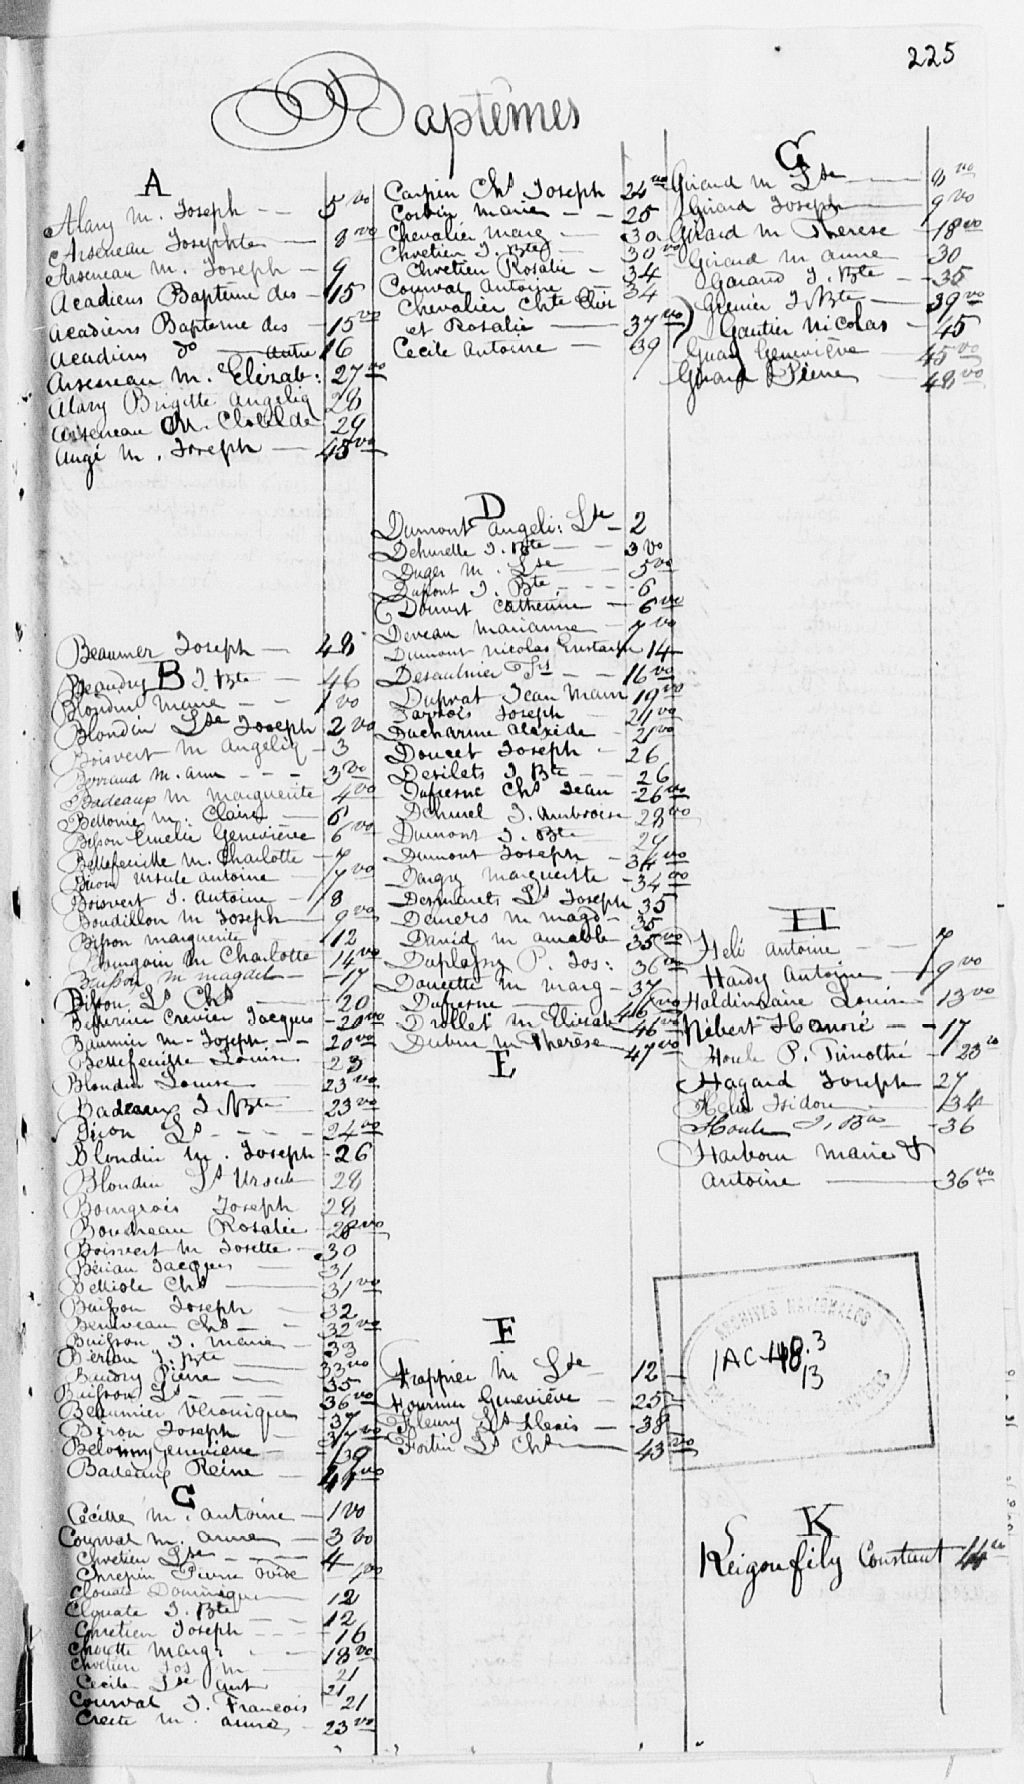 225
Baptêmes
A
Alary M. Joseph 5 vo
Arseneau Josephte 8 vo
Arseneau M. Joseph 9
Acadiens Baptême des 15
Acadiens Bapteme des 15 vo
Acadiens do autre 16
Arseneau M. Elizab: 27 vo
Alary Brigitte Angeliq 28
Arseneau M. Clotilde 29
Augé M. Joseph 45 vo
Beaumier Joseph 48
B
Beaudry J. Bte 46
Blondin Marie 1 vo
Blondin Lse Joseph 2 vo
Boisvert M Angeliq 3
M. Ann 3 vo
Badeaux M Marguerite 4 vo
M. Claire 6
Emelie Geneviève 6 vo
Bellefeuille M. Charlotte 7
Ursule Antoine 7 vo
Boisvert J. Antoine 8
Boudillon M Joseph 9 vo
Bisson Marguerite 12
Bourgoin M Charlotte 14 vo
Buisson M Magdel 17
Bisson Ls Chs 20
Crevier Jacques 20 vo
Baumier M. Joseph 20 vo
Bellefeuille Louise 23
Blondin Louise 23 vo
Badeaux J. Bte 23 vo
Ls 24 vo
Blondin M. Joseph 26
Blondin Ls Ursule 28
Bourgeois Joseph 28
Boudreau Rosalie 28 vo
Boisvert M Josette 30
Jacques 31
Chs 31 vo
Buisson Joseph 32
Chs 32 vo
Buisson J. Marie 33
J. Bte 33 vo
Baudry Pierre 35
Buisson Ls 36 vo
Beaumier Veronique 37
Béron Joseph 37 vo
Geneviève 39
Badeaux Reine 44 vo
C
Cécille M. Antoine 1 vo
Courval M. Anne 3 vo
Chretien Lse 4
Crepin Pierre Ovide 7 vo
Clouate Dominique 12
Clouate J. Bte 12
Chretien Joseph 16
Marg: 18 vo
Chretien Jos M 21
Cecile Lse Ant 21
Courval J. Francois 21
M. Anne 23 vo
Carpin Chs Joseph 24 vo
Corbin Marie 25
Chevalier Marg 30
Chretien J. Bte 30 vo
Chrétien Rosalie 34
Courval Antoine 34
Chevalier Chte Elis
et Rosalie 37 vo
Cecile Antoine 39
D
Dumont Angeli: Lse 2
Dehurelle J. Bte 3 vo
Duger M. Lse 5 vo
Dupont J. Bte 6
Catherine 6 vo
Deveau Marianne 7 vo
Dumont Nicolas Eustache 14
Desaulnier Frs 16 vo
Duprat Jean Marie 19 vo
Joseph 21 vo
Ducharme Alexide 21 vo
Doucet Joseph 26
Desilets J. Bte 26
Dufresne Chs Jean 26 vo
Dehurel J. Ambroise 28 vo
Dumont J. Bte 29
Dumont Joseph 34 vo
Daigry Marguerite 34 vo
Desmarets Ls Joseph 35
Demers M Magd 35
David M Amable 35 vo
Duplassy P. Jos: 36 vo
Doucette M Marg 37
Dufresne 46 vo
Drollet M Elizab 46 vo
Dubuc M Thérèse 47 vo
E
F
Frappier M Lse 12
Fournier Geneviève 25
Fleury Ls Alexis 38
Fortin Ls Chs 43 vo
G
Girard M Lse 8 vo
Girard Joseph 9 vo
Girard M Therese 18 vo
Girard M Anne 30
Garand J. Bte 35
Grenier J Bte 39 vo
Gautier Nicolas 45
Geneviève 45 vo
Girard Pierre 48 vo
H
Heli Antoine 7
Hardy Antoine 9 vo
Haldimaire Louise 13 vo
Hébert Honoré 17
Houle P. Timothé 23 vo
Hagard Joseph 27
Heli Isidore 34
Houle J. Bte 36
Harbour Marie &
Antoine 36 vo
ARCHIVES NATIONALES
K
Keigoufily Constant 44 vo